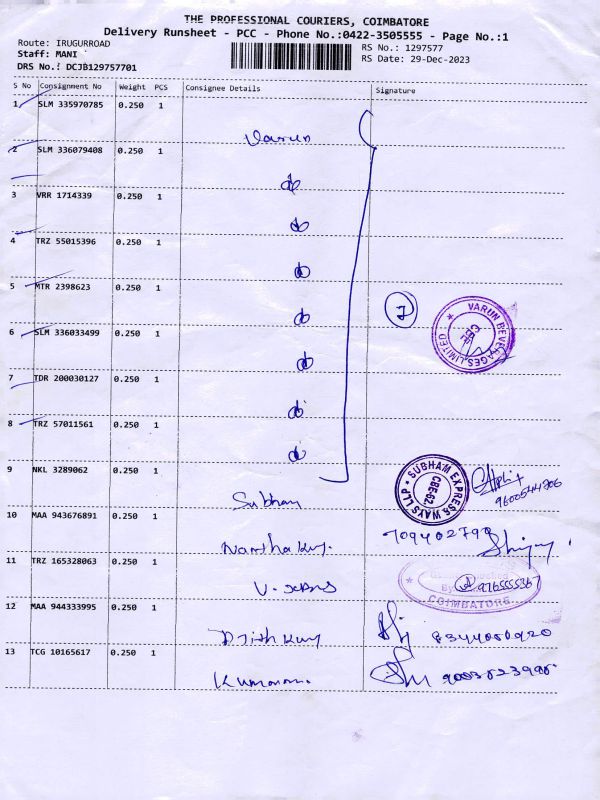 THE PROFESSIONAL COURIERS, COIMBATORE
Delivery Runsheet - PCC - Phone No.:0422-3505555 - Page No.:1
Route: IRUGURROAD
Staff: MANI
DRS No.: DCJB129757701
RS No.: 1297577
RS Date: 29-Dec-2023
S No Consignment No Weight PCS Consignee Details Signature
1 SLM 335970785 0.250 1
Varun
2 SLM 336079408 0.250 1
do
3 VRR 1714339 0.250 1
do
4 TRZ 55015396 0.250 1
do
5 MTR 2398623 0.250 1
do
7
VARUN BEVERAGES LIMITED
6 SLM 336033499 0.250 1
do
7 TDR 200030127 0.250 1
do
8 TRZ 57011561 0.250 1
do
9 NKL 3289062 0.250 1
Subham
SUBHAM EXPRESS WAYS LLP
CBE-62
9600544206
10 MAA 943676891 0.250 1
Nantha
11 TRZ 165328063 0.250 1
9765555367
COIMBATORE
12 MAA 944333995 0.250 1
13 TCG 10165617 0.250 1